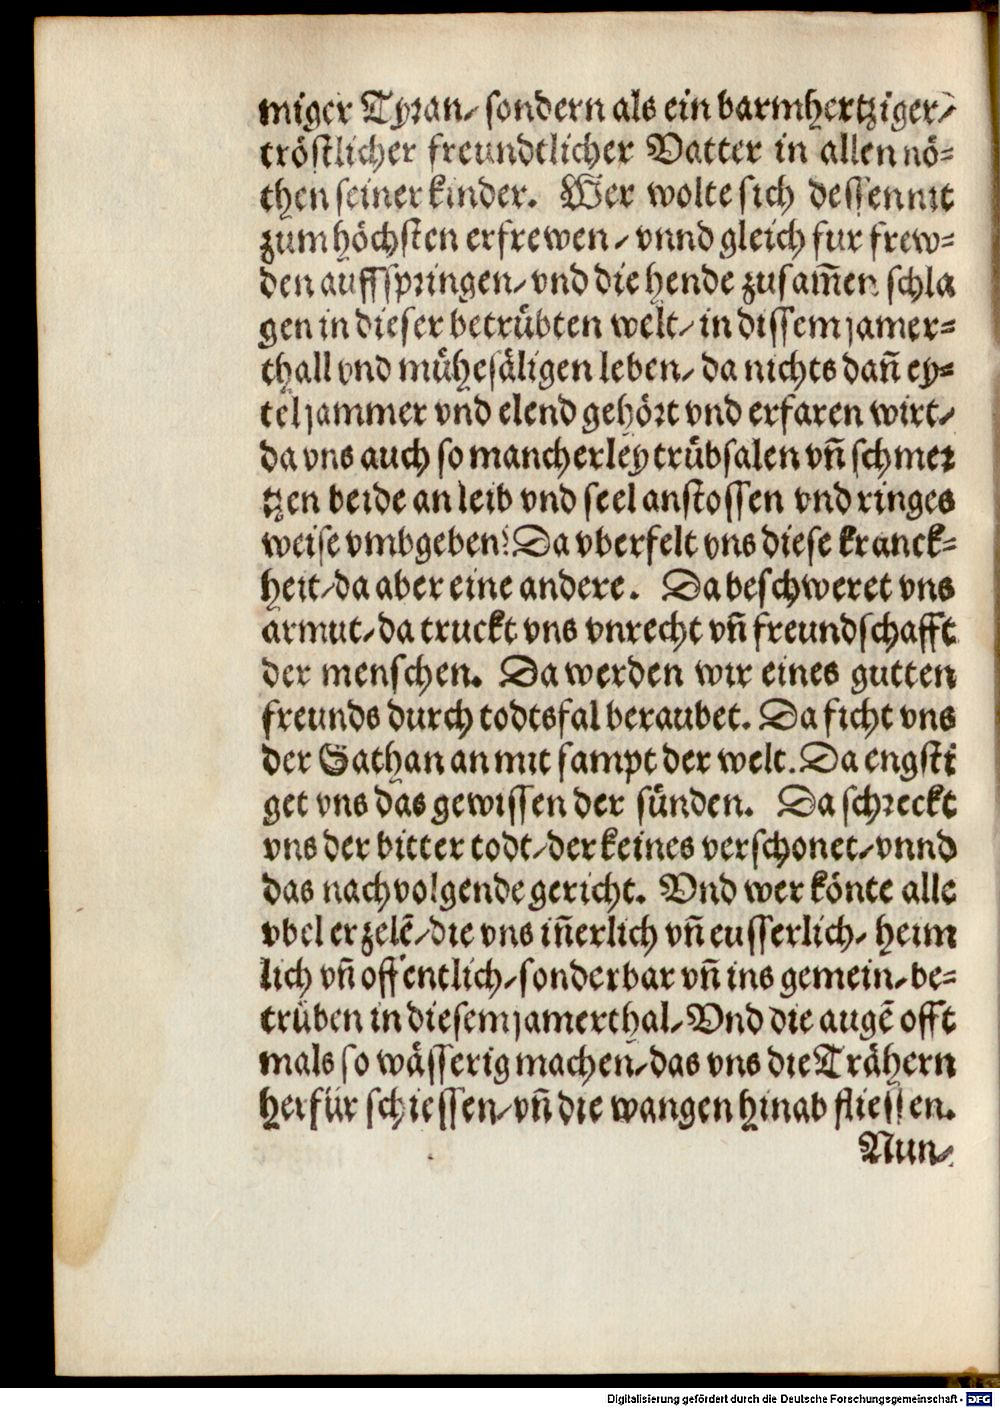 miger Tyran/ sondern als ein barmhertziger/
tröstlicher freundtlicher Vatter in allen nö⸗
then seiner kinder. Wer wolte sich dessen nit
zum höchsten erfrewen / vnnd gleich fur frew⸗
den auffspringen/ vnd die hende zusam̃en schla
gen in dieser betrübten welt/ in dissem jamer⸗
thall vnd mühesäligen leben/ da nichts dañ ey⸗
tel jammer vnd elend gehört vnd erfaren wirt/
da vns auch so mancherley trübsalen vñ schmer
tzen beide an leib vnd seel anstossen vnd ringes
weise vmbgeben? Da vberfelt vns diese kranck⸗
heit/ da aber eine andere. Da beschweret vns
armut/ da truckt vns vnrecht vñ freundschafft
der menschen. Da werden wir eines gutten
freunds durch todtsfal beraubet. Da ficht vns
der Sathan an mit sampt der welt. Da engsti
get vns das gewissen der sünden. Da schreckt
vns der bitter todt/ der keines verschonet/ vnnd
das nachvolgende gericht. Vnd wer könte alle
vbel erzelē/ die vns iñerlich vñ eusserlich/ heim
lich vñ offentlich/ sonderbar vñ ins gemein/ be⸗
trüben in diesem jamerthal/ Vnd die augē offt
mals so wässerig machen/ das vns die Trähern
herfür schiessen/ vñ die wangen hinab fliessen.
Nun/
Digitalisierung gefördert durch die Deutsche Forschungsgemeinschaft - DFG